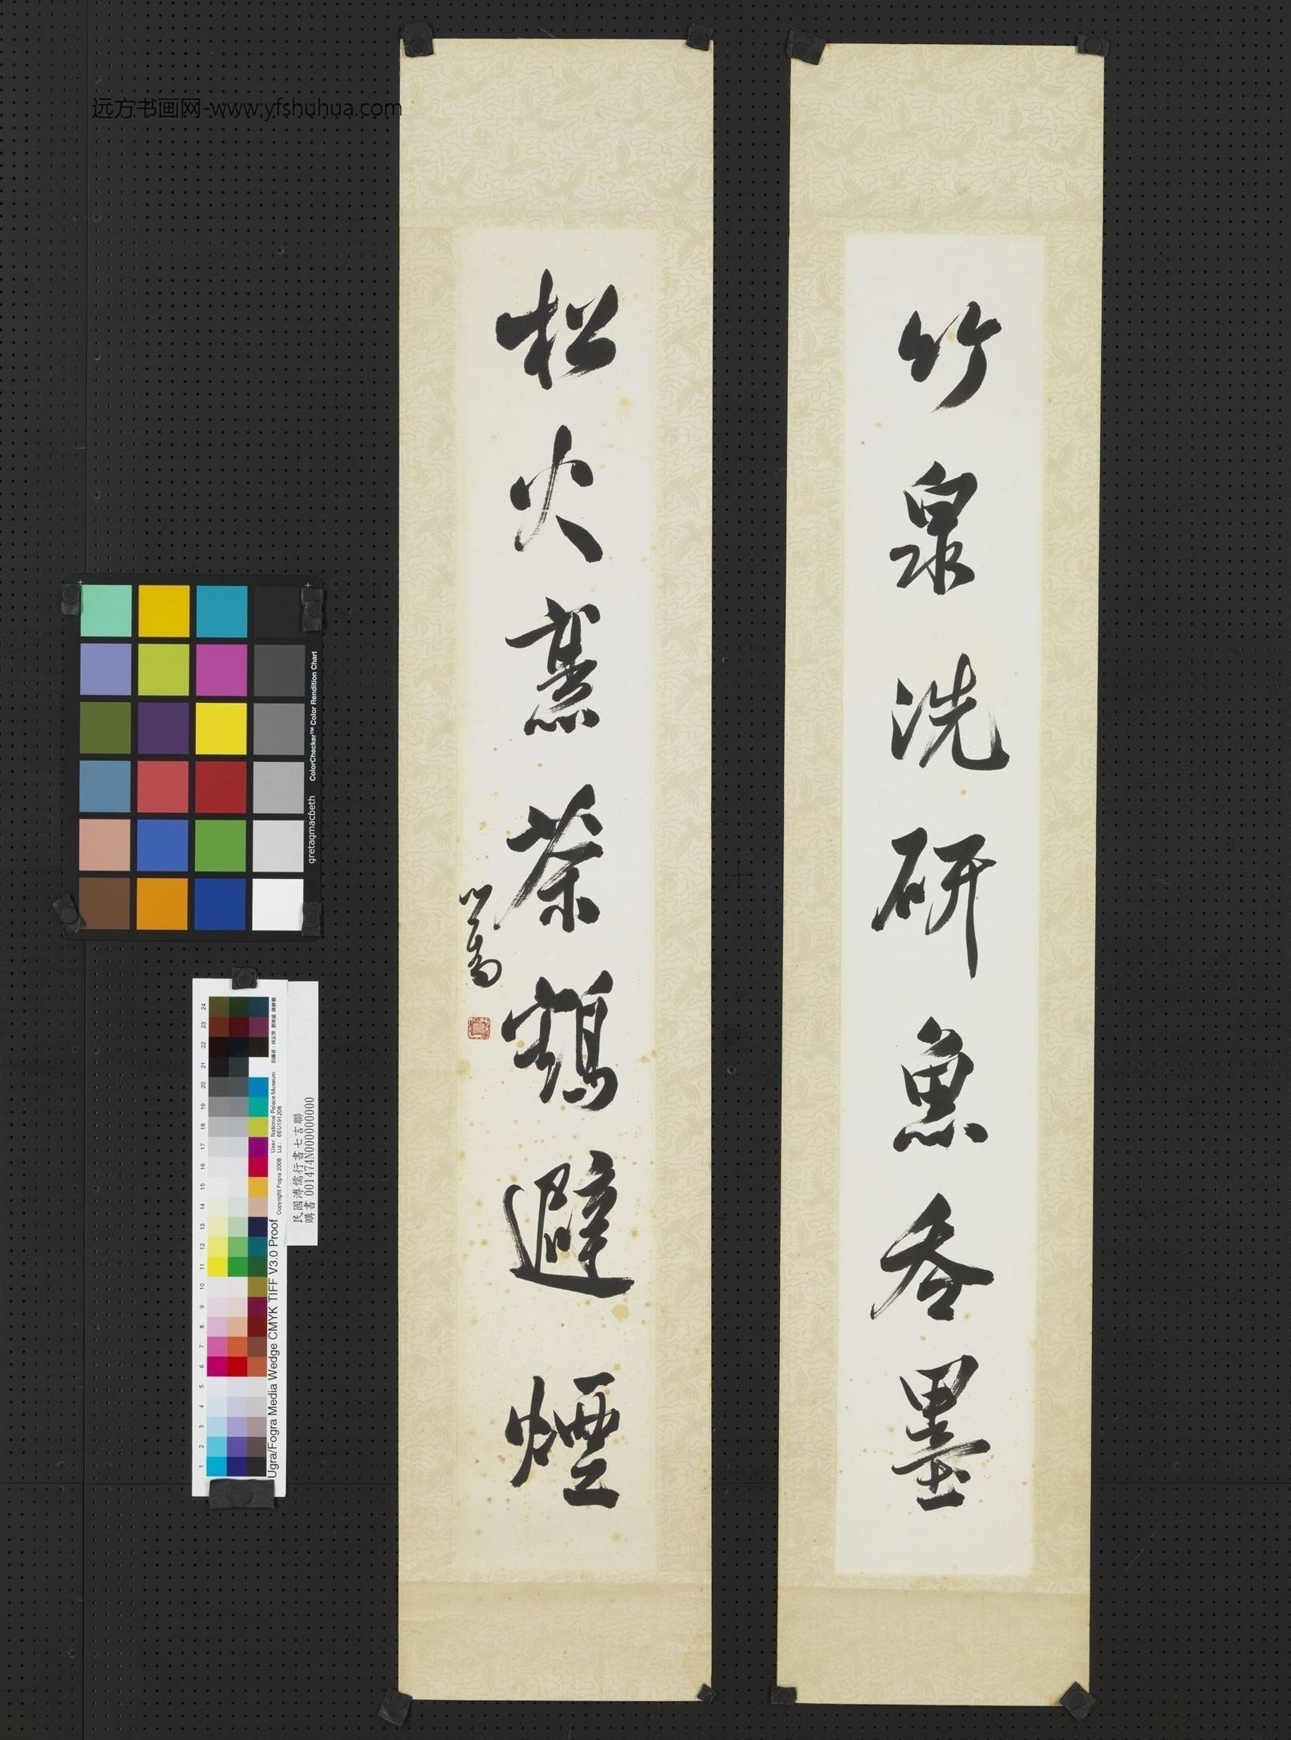 远方书画网-www.yfshuhua.com
竹泉洗研魚吞墨
松火烹茶鶴避煙
心畬
ColorChecker™ Color Rendition Chart
gretagmacbeth
民國溥儒行書七言聯
購書 001474N000000000
Ugra/Fogra Media Wedge CMYK TIFF V3.0 Proof
Copyright Fogra 2008
User: National Palace Museum
1 2 3 4 5 6 7 8 9 10 11 12 13 14 15 16 17 18 19 20 21 22 23 24